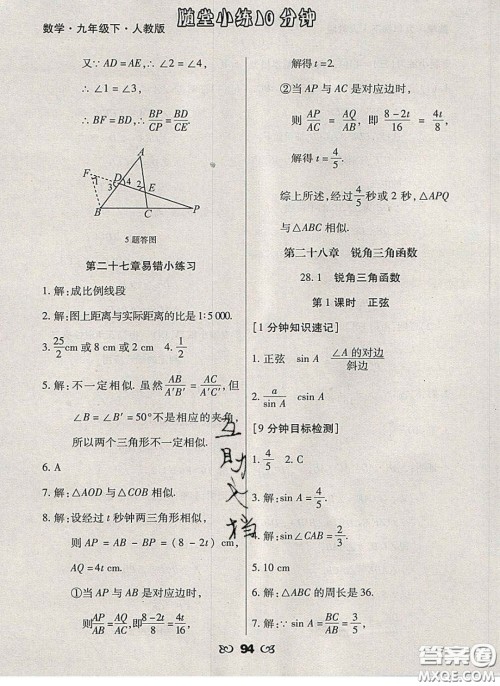 数学·九年级下·人教版
随堂小练10分钟
又∵ AD = AE, ∴ ∠2 = ∠4,
∴ ∠1 = ∠3,
∴ BF = BD, ∴ BP/CP = BD/CE.
A
F
D
4
3
2
E
1
B
C
P
5题答图
第二十七章易错小练习
1. 解:成比例线段
2. 解:图上距离与实际距离的比是1:5 000.
3. 25/2 cm 或 8 cm 或 2 cm 4. 1/2
5. 解:不一定相似. 虽然 AB/A′B′ = AC/A′C′, 但
∠B = ∠B′ = 50°不是相应的夹角,
所以两个三角形不一定相似.
6. A
7. 解:△AOD 与△COB 相似.
8. 解:设经过 t 秒钟两三角形相似,
则 AP = AB - BP = (8 - 2t) cm,
AQ = 4t cm.
①当 AP 与 AB 是对应边时,
则 AP/AB = AQ/AC, 即 8-2t/8 = 4t/16,
解得 t = 2.
②当 AP 与 AC 是对应边时,
则 AP/AC = AQ/AB, 即 8-2t/16 = 4t/8,
解得 t = 4/5.
综上所述, 经过 4/5 秒或 2 秒, △APQ
与△ABC 相似.
第二十八章 锐角三角函数
28.1 锐角三角函数
第1课时 正弦
[1分钟知识速记]
1. 正弦 sin A ∠A的对边/斜边
2. a/sin A csin A
[9分钟目标检测]
1. 4/5 2. C
3. 解:sin A = 4/5.
4. 解:sin∠CAB = 2/3.
5. 10 cm
6. 解:△ABC 的周长是 36.
7. 解:∵ sin A = BC/AB = 4/5,
互助文档
94
答案圈
MXQE.COM